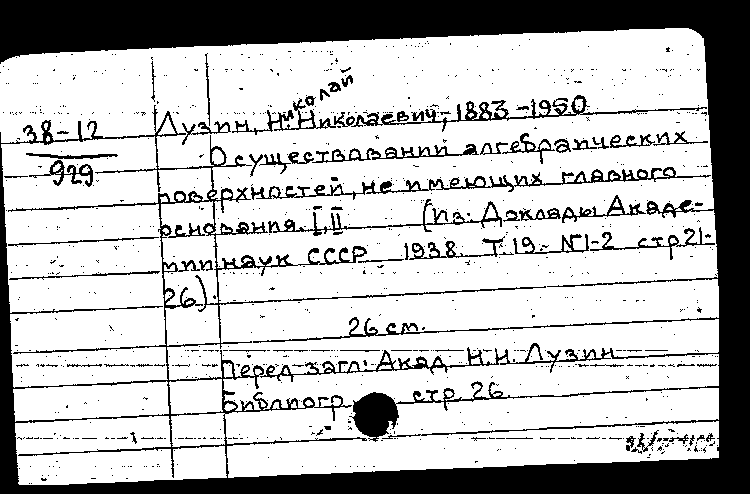 Николай
38-12
929
Лузин, Н. Николаевич, 1883-1950
О существовании алгебраических
поверхностей, не имеющих главного
основания. I, II (Из: Доклады Акаде-
мии наук СССР 1938. Т.19.- №1-2 стр21-
26).
26 см.
Перед загл: Акад. Н.Н. Лузин
Библиогр. стр. 26.